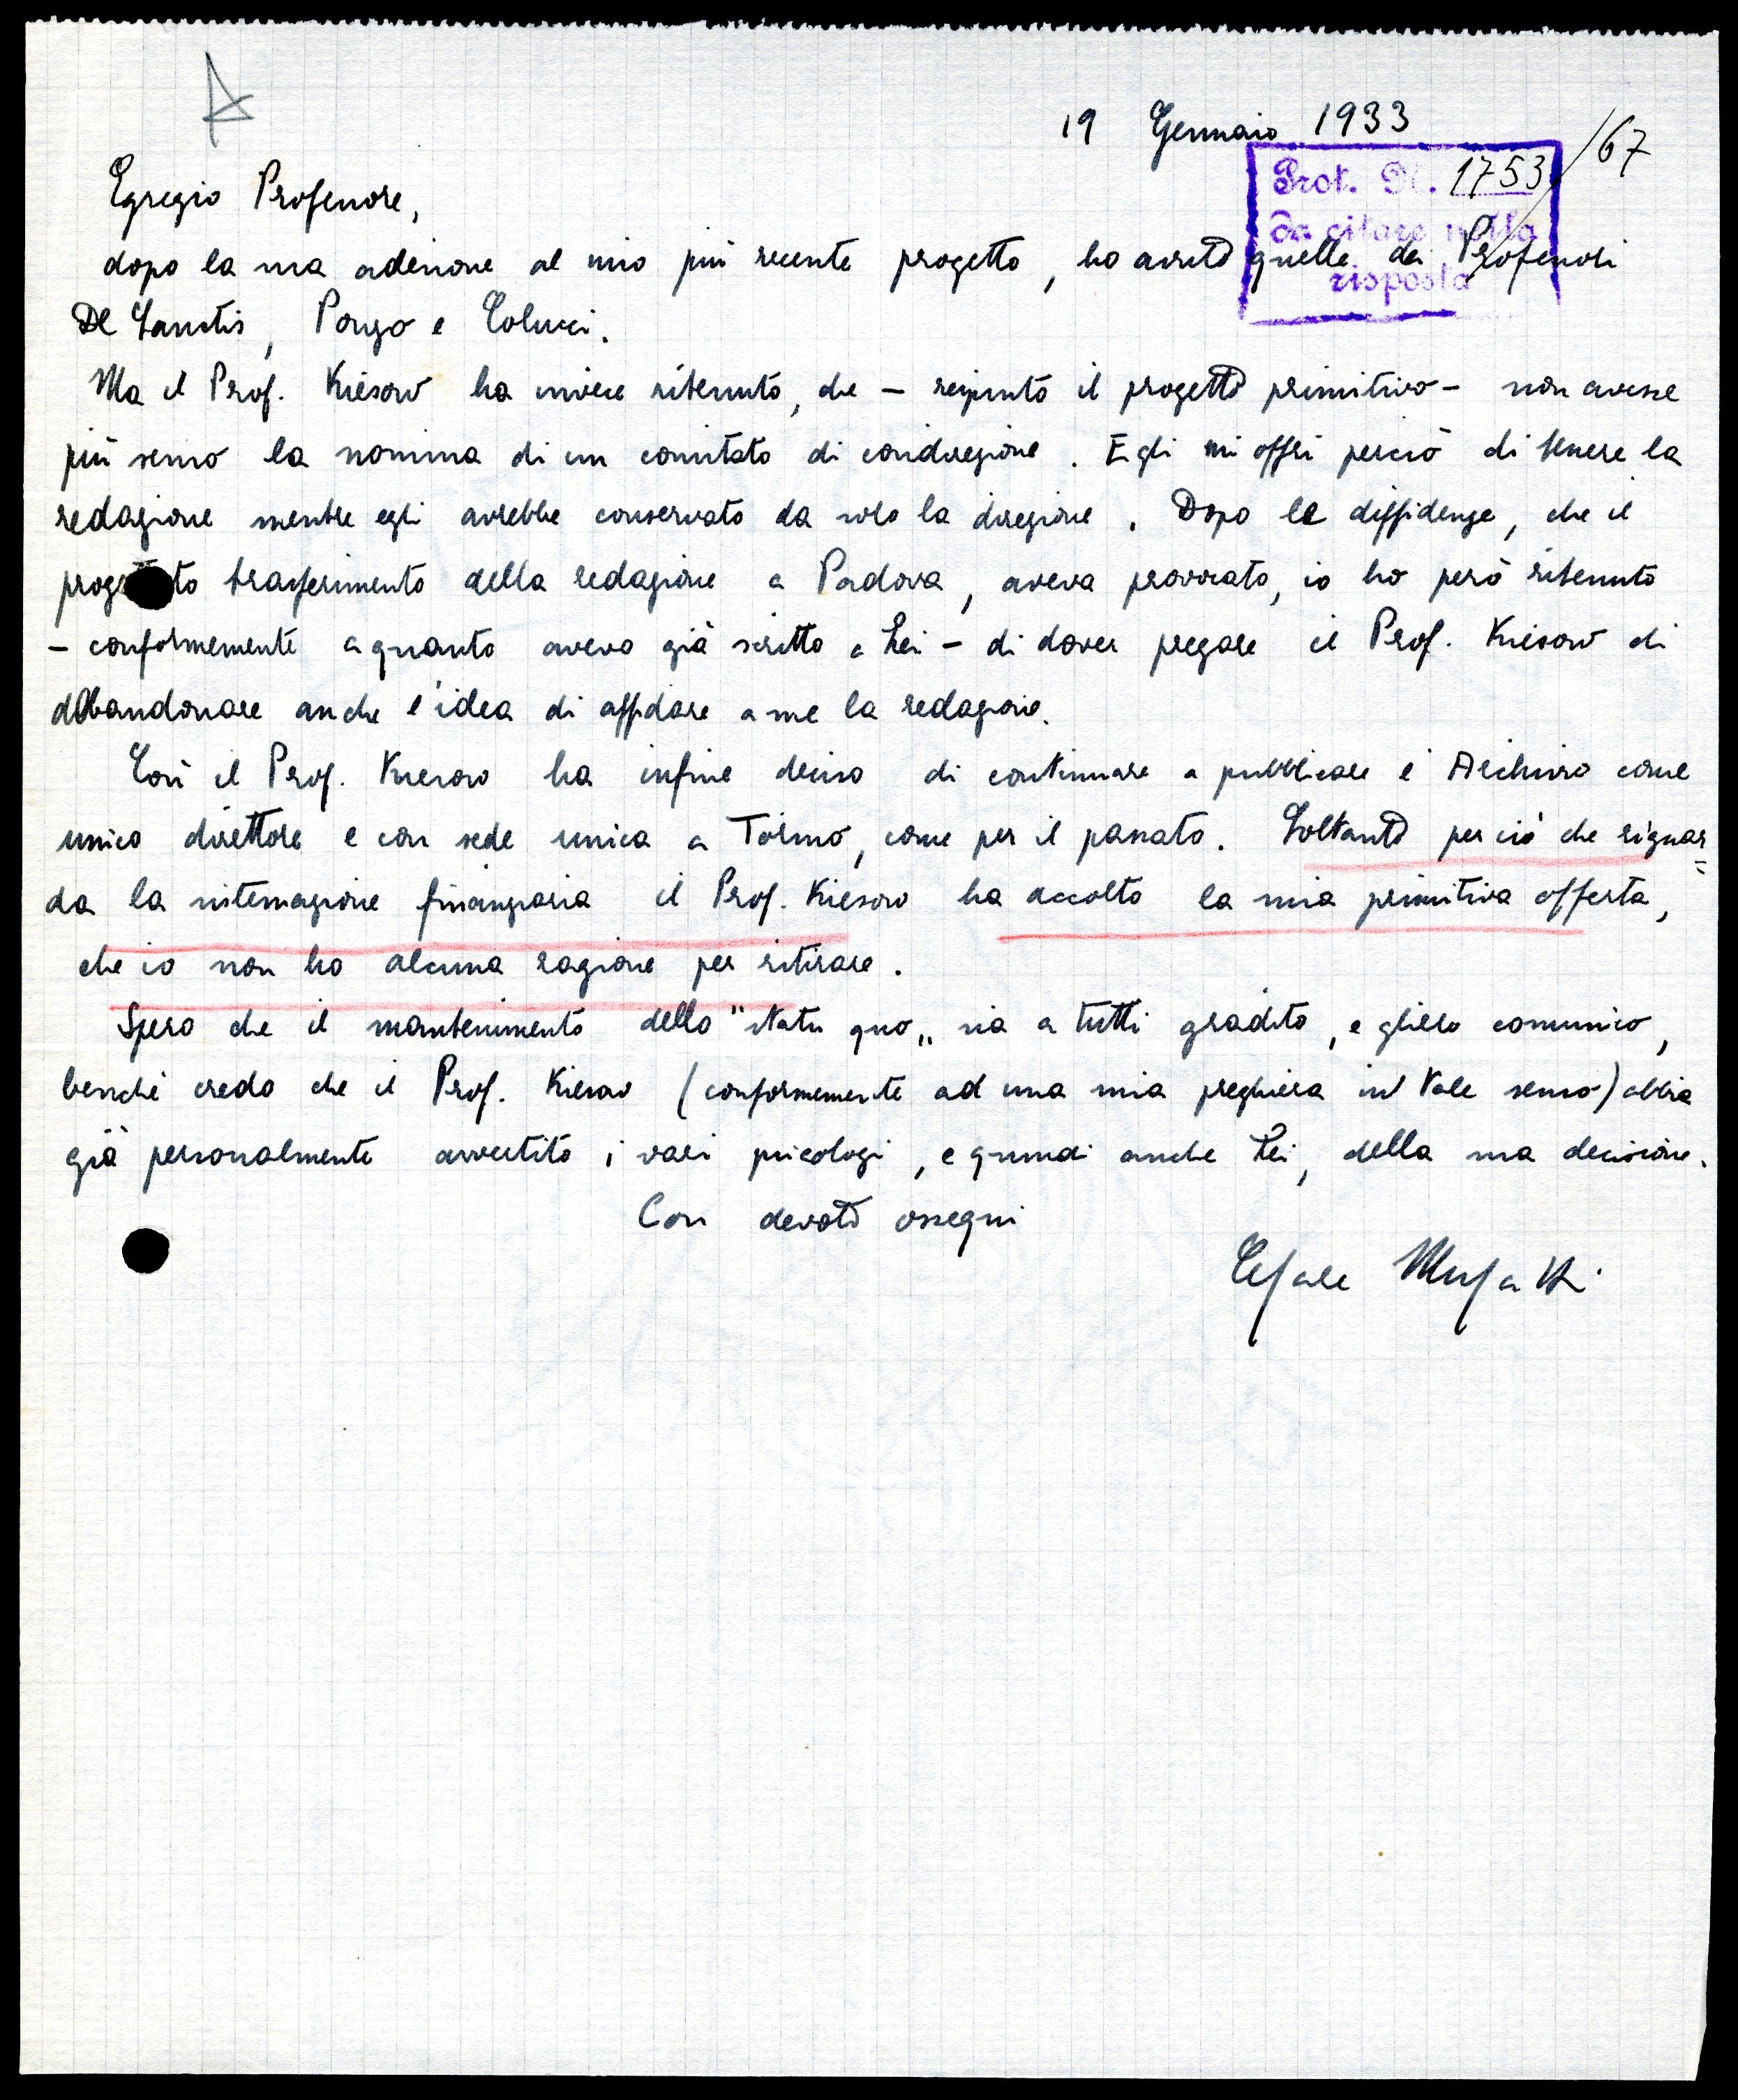 19 Gennaio 1933
Prot. N. 1753/67
Da citare nella
risposta
Egregio Professore,
dopo la sua adesione al mio più recente progetto, ho avuto quelle dei Professori
De Sanctis, Ponzo e Colucci.
Ma il Prof. Kiesow ha invece ritenuto, che – respinto il progetto primitivo – non avesse
più senso la nomina di un comitato di condirezione. Egli mi offrì perciò di tenere la
redazione mentre egli avrebbe conservato da solo la direzione. Dopo le diffidenze, che il
progettato trasferimento della redazione a Padova, aveva provocato, io ho però ritenuto
– conformemente a quanto avevo già scritto a Lei – di dover pregare il Prof. Kiesow di
abbandonare anche l'idea di affidare a me la redazione.
Così il Prof. Kiesow ha infine deciso di continuare a pubblicare l'Archivio come
unico direttore e con sede unica a Torino, come per il passato. Soltanto per ciò che riguar=
da la sistemazione finanziaria il Prof. Kiesow ha accolto la mia primitiva offerta,
che io non ho alcuna ragione per ritirare.
Spero che il mantenimento dello "statu quo„ sia a tutti gradito, e glielo comunico,
benchè creda che il Prof. Kiesow (conformemente ad una mia preghiera in tale senso) abbia
già personalmente avvertito i vari psicologi, e quindi anche Lei, della sua decisione.
Con devoti ossequi
Cesare Musatti